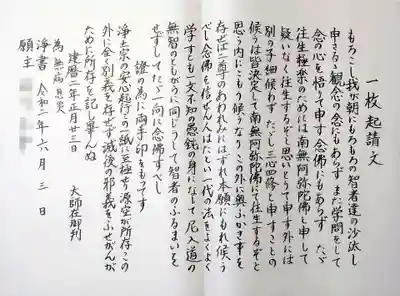 一枚起請文
もろこし我が朝にもろもろの智者達の沙汰し
申さるる観念の念にもあらず また学問をして
念の心を悟りて申す念佛にもあらず たゞ
往生極楽のためには南無阿弥陀佛と申して
疑いなく往生するぞと思いとりて申す外には
別の子細候わず たゞし三心四修と申すことの
候うは皆決定して南無阿弥陀佛にて往生するぞと
思う内にこもり候うなり この外に奥ふかき事を
存せば二尊のあわれみにはずれ本願にもれ候う
べし 念佛を信ぜん人はたとい一代の法をよくよく
学すとも一文不知の愚鈍の身になして尼入道の
無智のともがらに同じうして智者のふるまいを
せずしてたゞ一向に念佛すべし
證の為に両手印をもってす
浄土宗の安心起行この一紙に至極す 源空が所存この
外に全く別義を存ぜず 滅後の邪義をふせがんが
ために所存を記し畢んぬ
建暦二年正月廿三日 大師在御判
為 無病息災
浄書 令和二年六月三日
願主